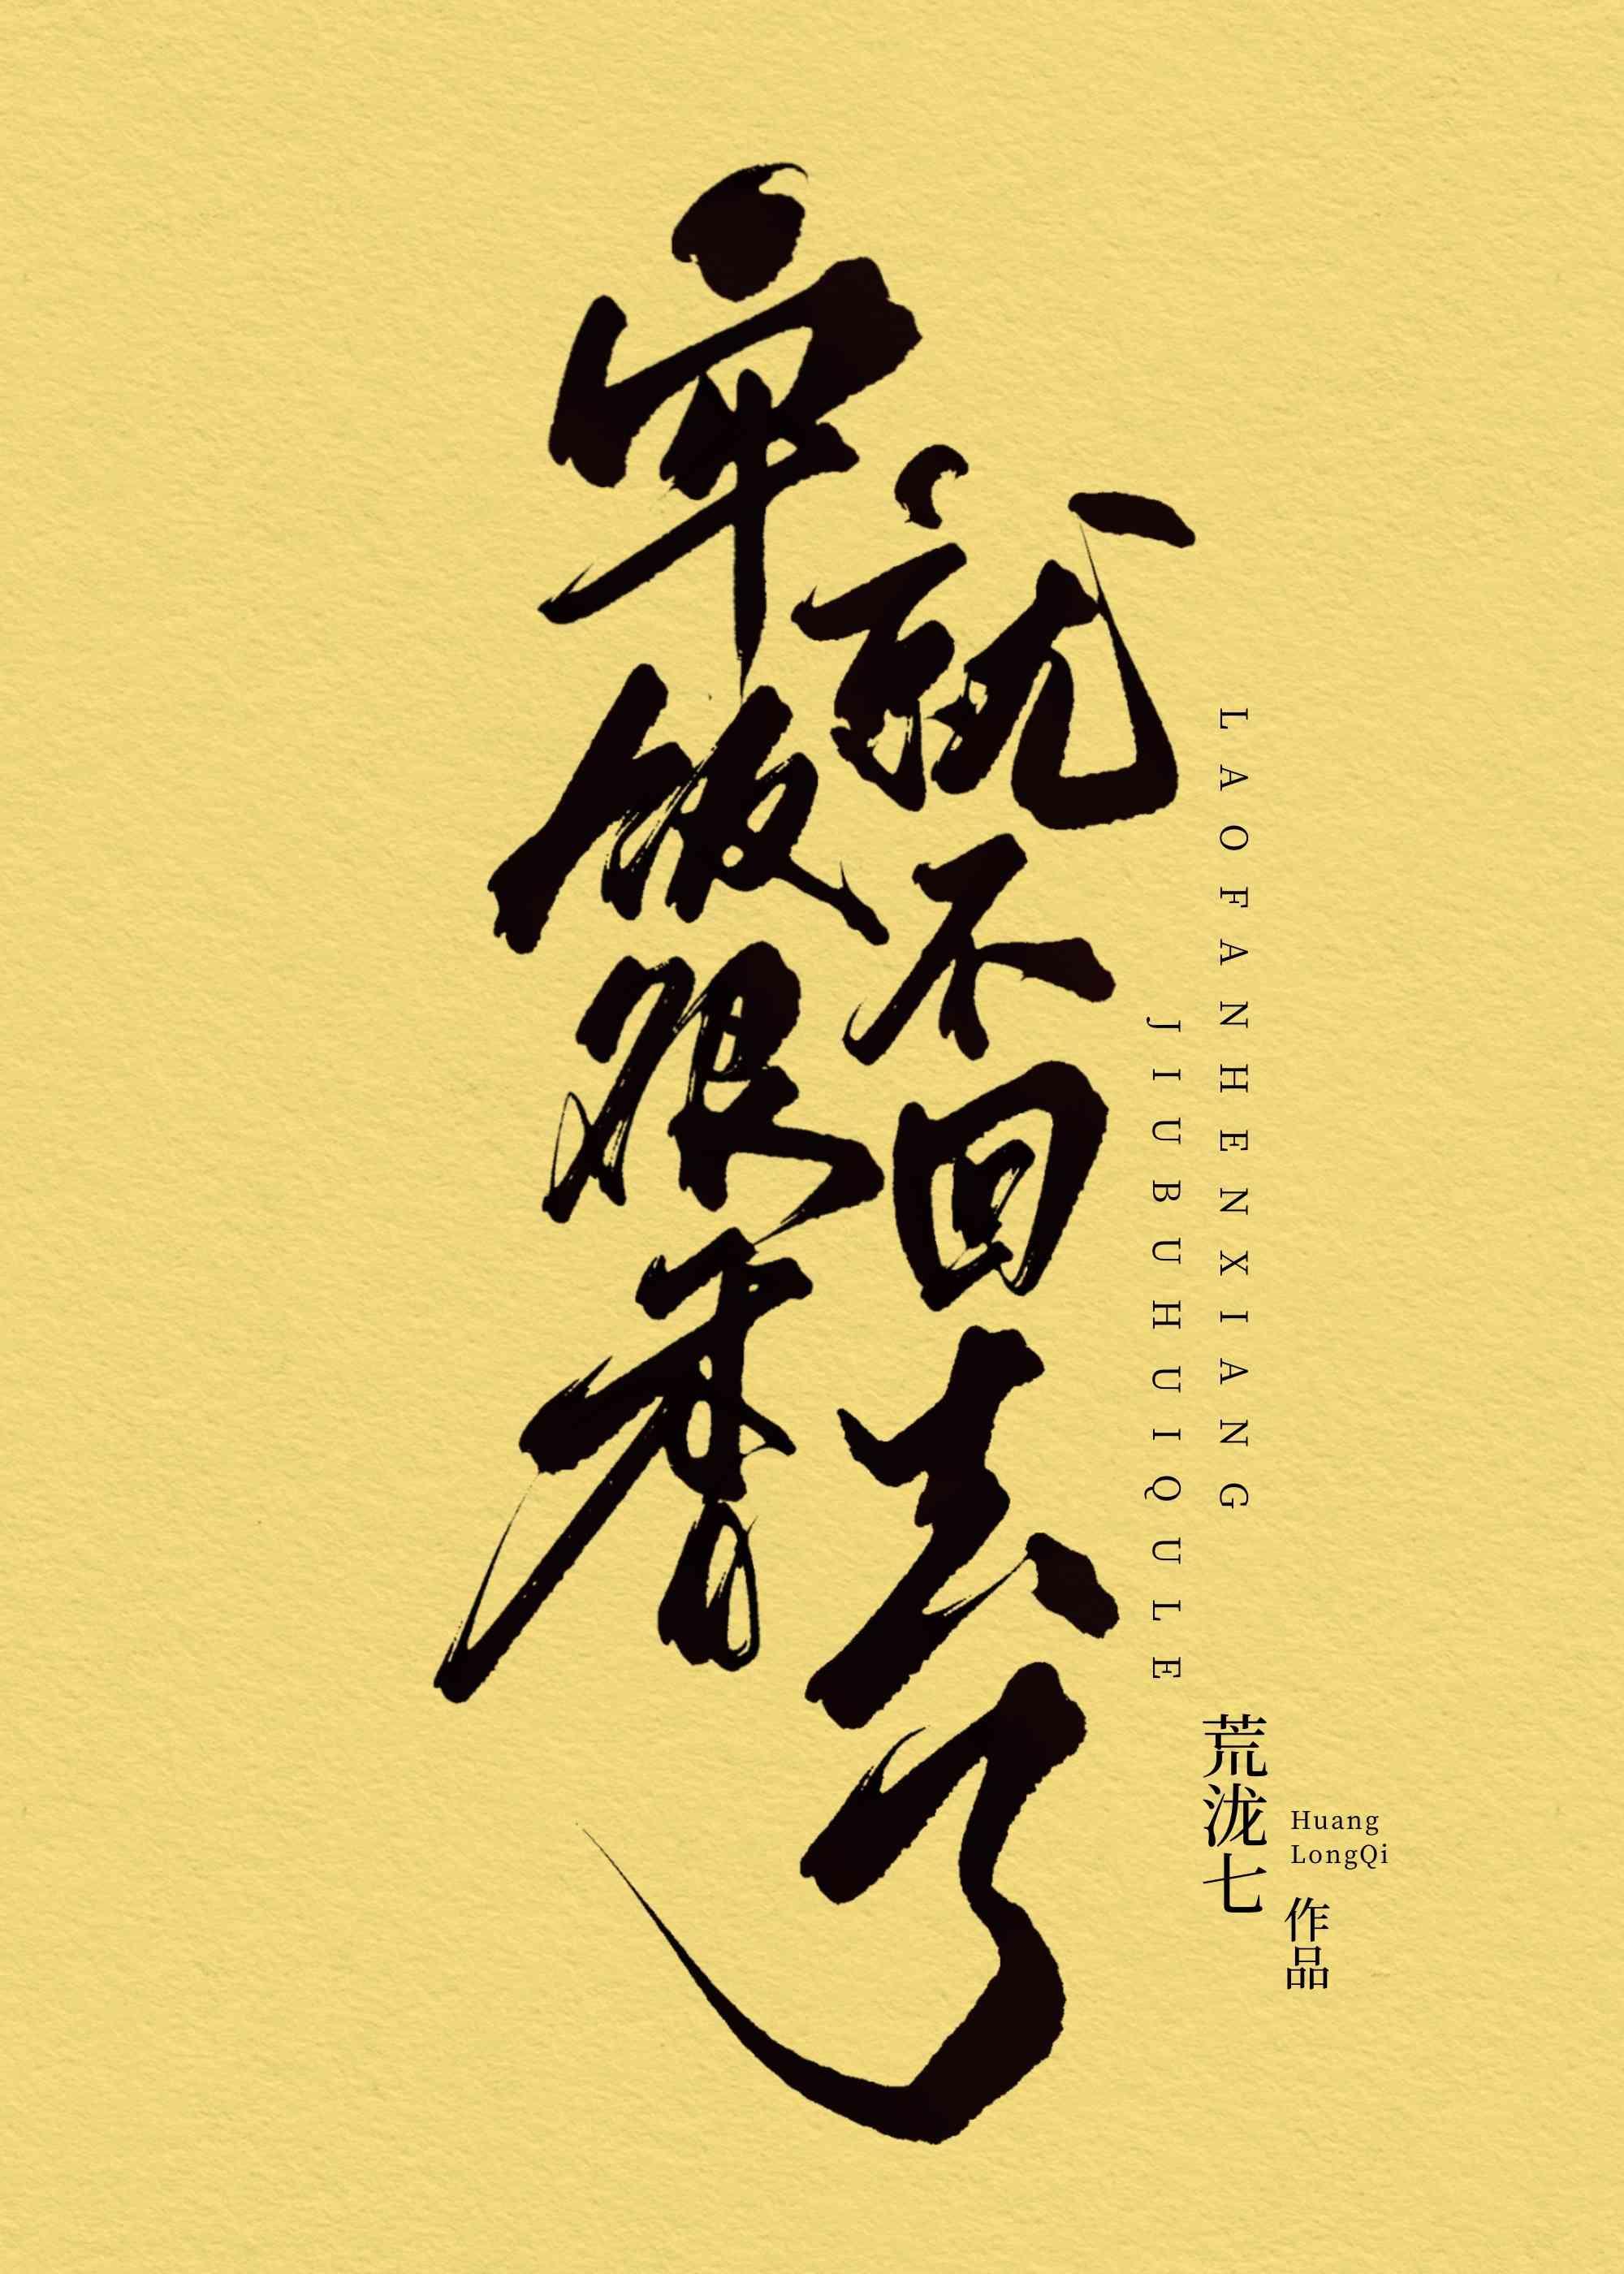 牢饭很香
就不回去了
LAOFANHENXIANG
JIUBUHUIQULE
荒泷七
Huang
LongQi
作品